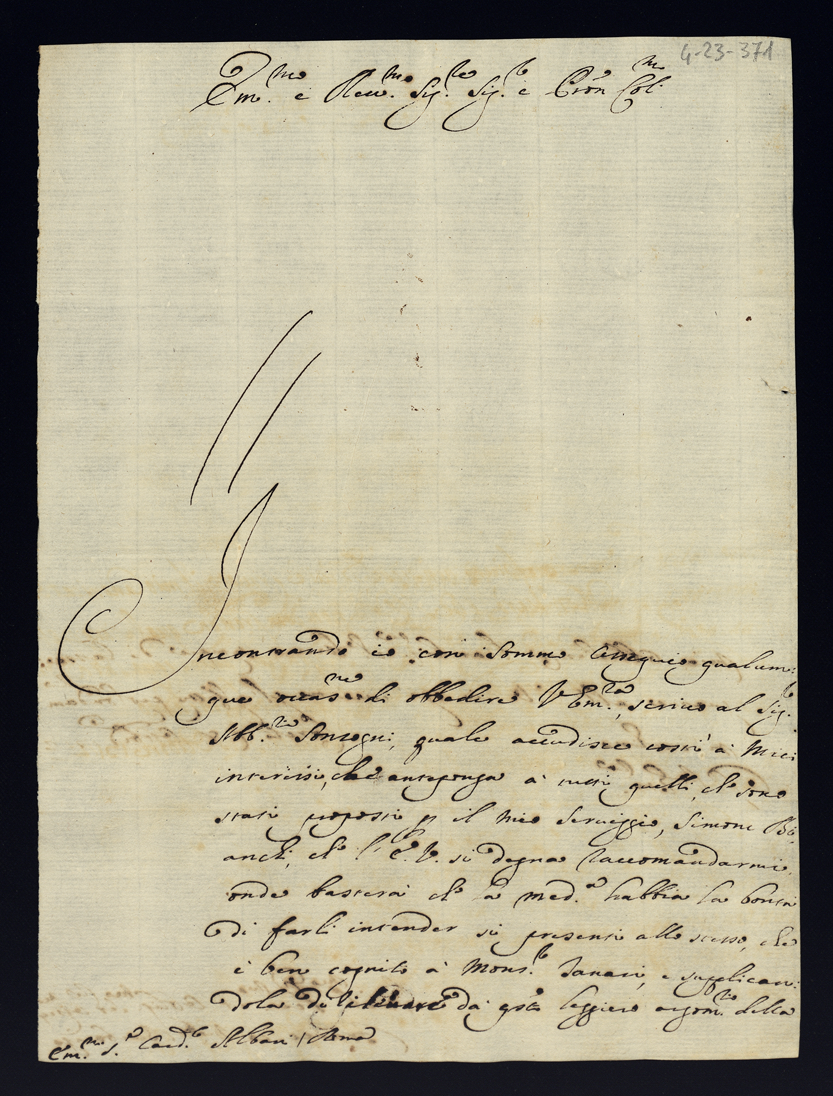 4-23-371
Em.mo e Rev.mo Sig.re Sig.r e Pron Col.mo
Incontrando io con somma osseguio qualum:
que occas.ne di obbedire V. Em.za, scrivo al Sig.r
Abb.te quale accudisce costì à miei
interessi, che anteponga à tutti quelli, che sono
stati proposti p il mio Servizio, Simone Bi
anchi, che l'E. V. si degna raccomandarmi
onde basterà che la med.a habbia la bontà
di farli intender si presenti allo stesso, che
è ben cognito à Mons.r e supplican:
dola di da q.sto leggiero argom.to della
Em.mo S.r Card.le Albani / Roma